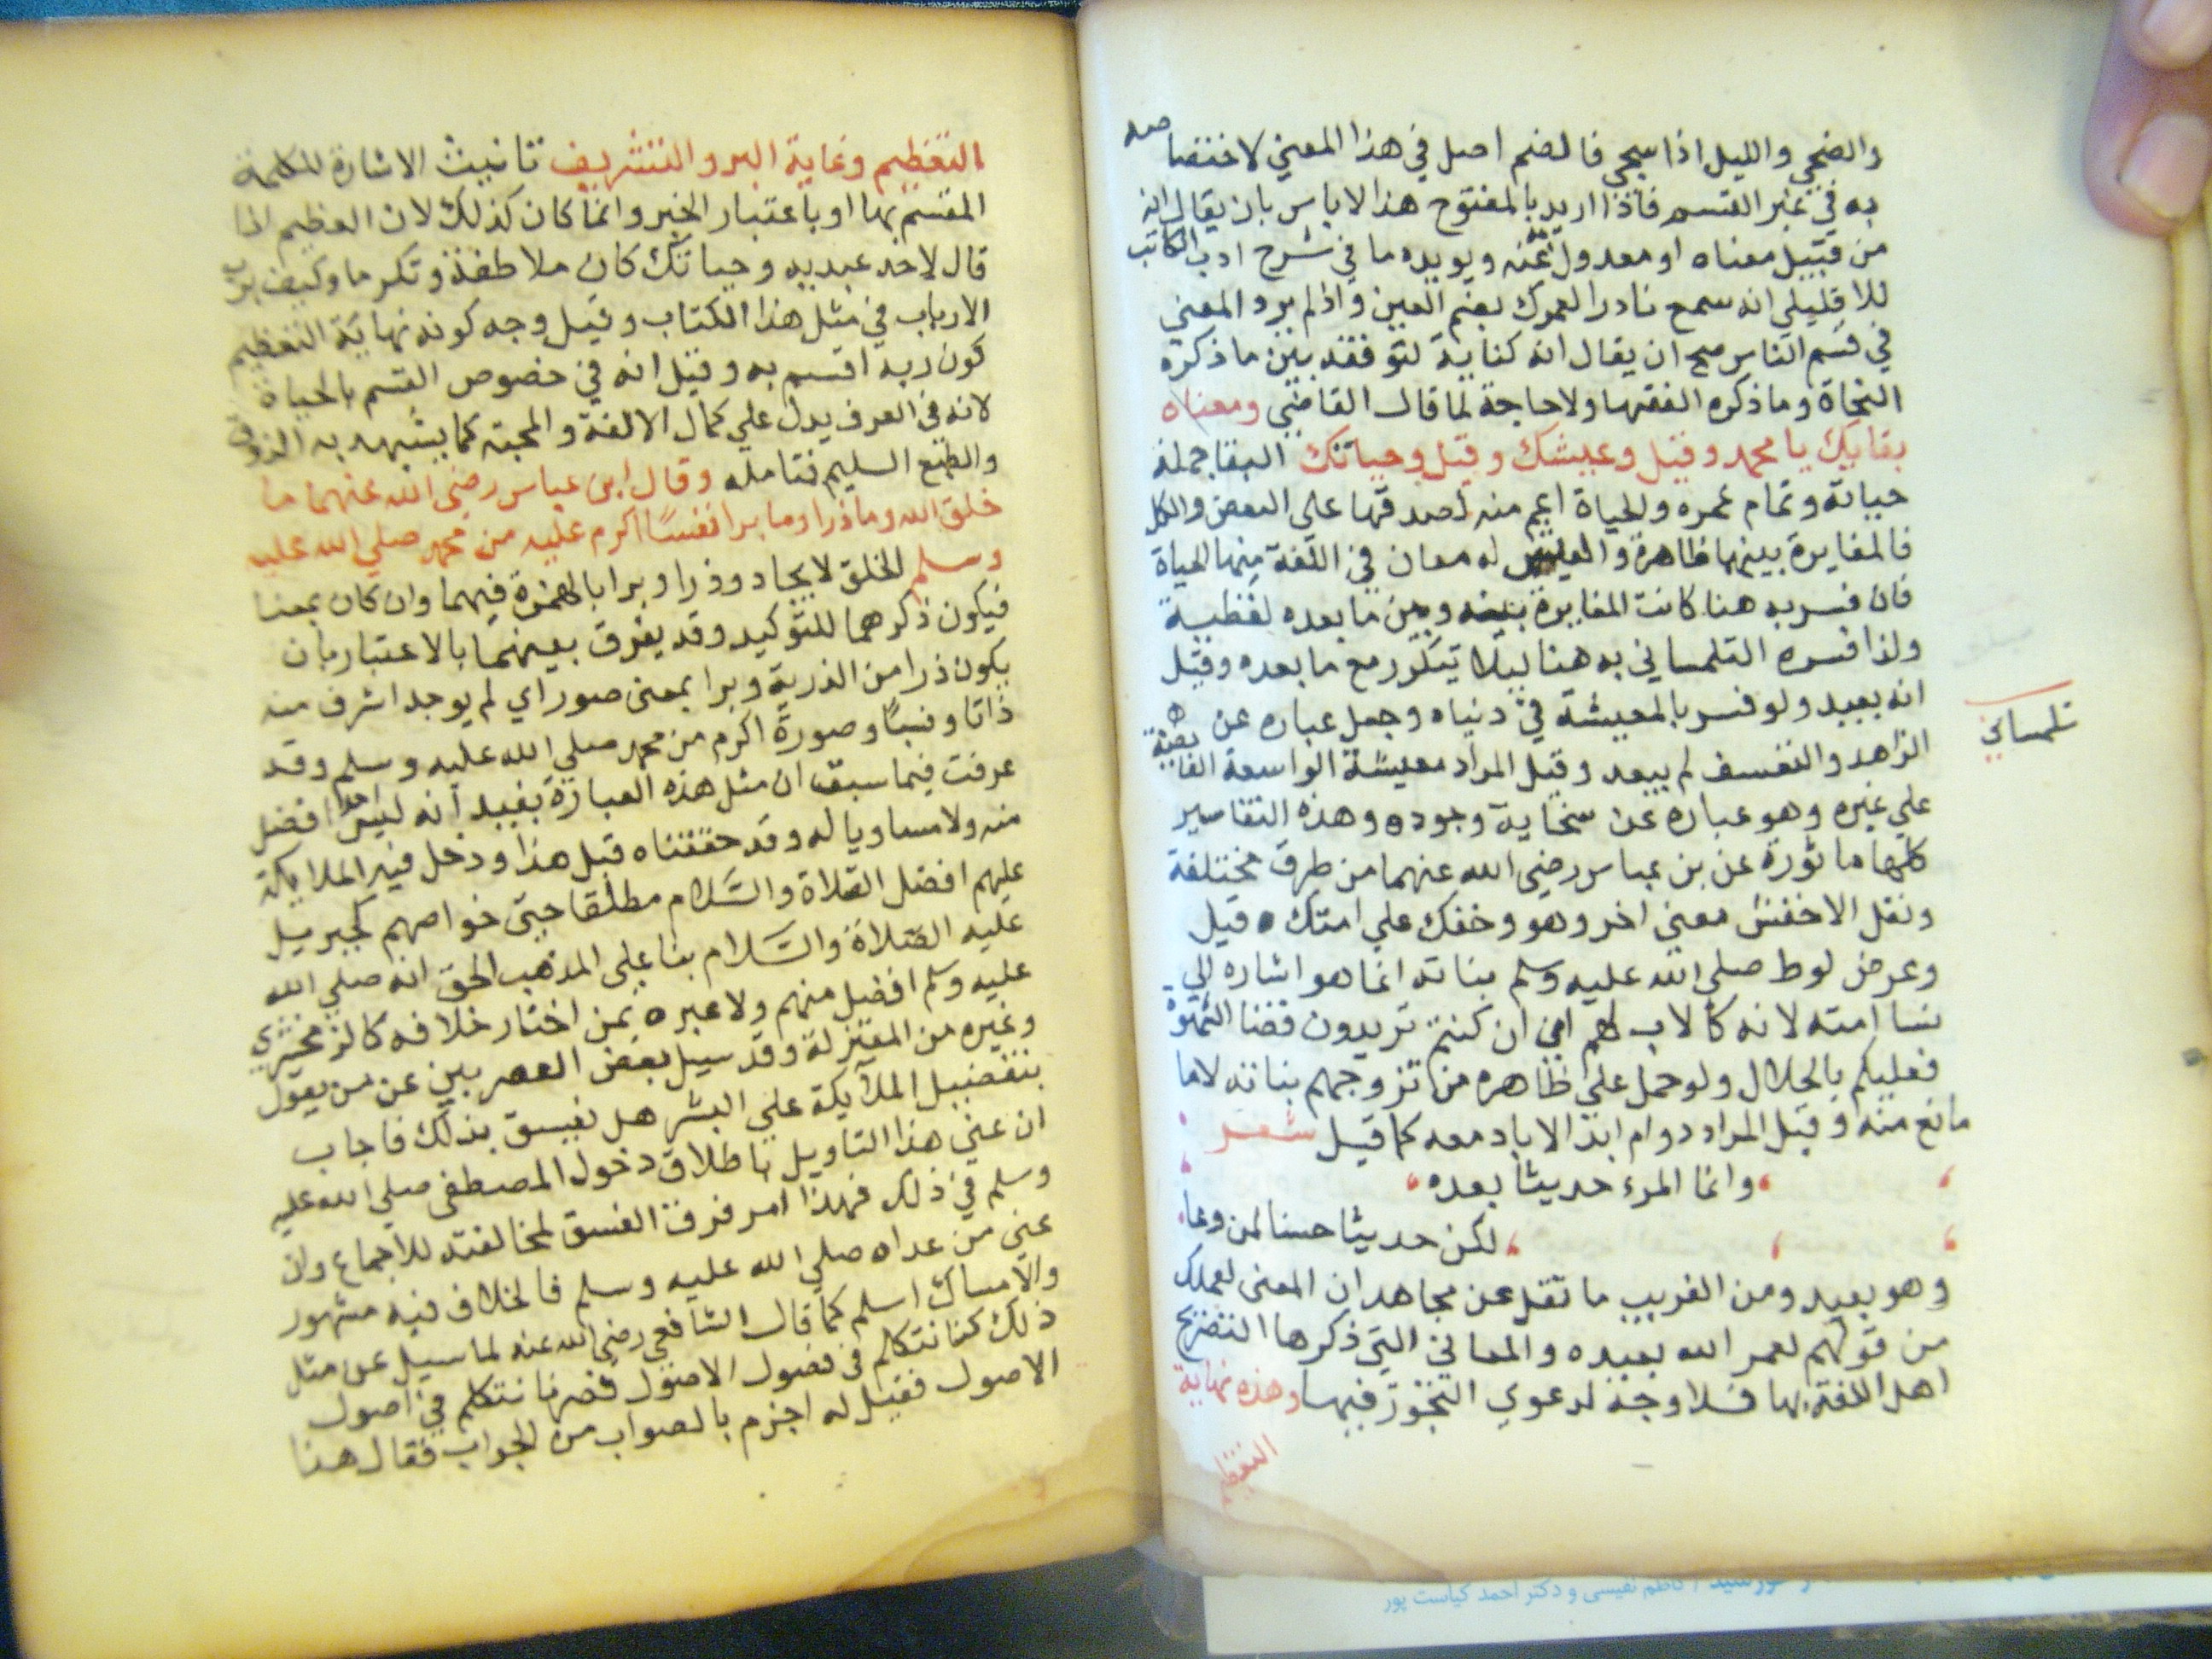 والضحي والليل اذا سجي فالضم اصل في هذا المعني لاختصاصه
به في غير القسم فاذا اريد بالمفتوح هذا لاباس بان يقال انه
من قبيل معناه او معدول عنه ويويده ما في شرح ادب الكاتب
للاقليلي انه سمع نادرا لعمرك بضم العين واذا لم يرد المعني
في قسم الناس صح ان يقال انه كناية لتوفقه بين ما ذكره
النحاة وما ذكره الفقها ولا حاجة لما قال القاضي ومعناه
بقايك يا محمد وقيل وعيشك وقيل وحياتك البقا جملة
حياته وتمام عمره والحياة اعم منه لصدقها علي البعض والكل
فالمغايرة بينهما ظاهرة والعيش له معان في اللغة منها الحياة
فان فسر به هنا كانت المغايرة بينه وبين ما بعده لفظية
ولذا فسره التلمساني به هنا ليلا يتكرر مع ما بعده وقيل
انه بعيد ولو فسر بالمعيشة في دنياه وجعل عباره عن
تلمساني
الزاهد والتقسف لم يبعد وقيل المراد معيشة الواسعة الفايضة
علي غيره وهو عباره عن سخايه وجوده وهذه التفاسير
كلها ماثورة عن بن عباس رضي الله عنهما من طرق مختلفة
ونقل الاخفش معني اخر وهو وخفك علي امتك قيل
وعرض لوط صلي الله عليه وسلم بناته انما هو اشاره الي
نسا امته لانه كالاب لهم اي ان كنتم تريدون قضا الشهوة
فعليكم بالحلال ولو حمل علي ظاهره من تزوجهم بناته لاما
مانع منه وقيل المراد دوام ابد الاباد معه كما قيل شعر
وانما المرء حديثا بعده
لكن حديثا حسنا لمن وعا
وهو بعيد ومن الغريب ما نقل عن مجاهد ان المعني لعملك
من قولهم لعمر الله بعبده والمعاني التي ذكرها التصريح
اهل اللغة بها فلا وجه لدعوي التجوز فيها وهذه نهاية
التعظيم
التعظيم وغاية البر والتشريف تانيث الاشارة للكلمة
المقسم بها او باعتبار الخبر وانما كان كذلك لان العظيم اذا
قال لاحد عبديه وحياتك كان ملاطفة وتكرما وكيف برب
الارباب في مثل هذا الكتاب وقيل وجه كونه نهاية التعظيم
كون ربه اقسم به وقيل انه في خصوص القسم بالحياة
لانه في العرف يدل علي كمال الالفة والمحبة كما يشهد به الذوق
والطبع السليم فتامله وقال ابن عباس رضي الله عنهما ما
خلق الله وما ذرا وما برا نفسًا اكرم عليه من محمد صلي الله عليه
وسلم الخلق لايجاد وذرا وبرا بالهمزة فيهما وان كان بمعنا
فيكون ذكرهما للتوكيد وقد يفرق بعينهما بالاعتبار بان
يكون ذرا من الذرية وبرا بمعني صور اي لم يوجد اشرف منه
ذاتا ونسبًا وصورة اكرم من محمد صلي الله عليه وسلم وقد
عرفت فيما سبق ان مثل هذه العبارة يفيد انه ليس احدا افضل
منه ولا مساويا له وقد حققناه قبل هذا ودخل فيه الملايكة
عليهم افضل الصلاة والسلام مطلقا حتي خواصهم كجبريل
عليه الصلاة والسلام بنا علي المذهب الحق انه صلي الله
عليه وسلم افضل منهم ولا عبره بمن اختار خلافه كالزمخشري
وغيره من المعتزلة وقد سيل بعض العصريين عن من يقول
بتفضيل الملايكة علي البشر هل يفسق بذلك فاجاب
ان عني هذا التاويل باطلاق دخول المصطفي صلي الله عليه
وسلم في ذلك فهذا امر فرق الفسق لمخالفته للاجماع وان
عني من عداه صلي الله عليه وسلم فالخلاف فيه مشهور
والامساك اسلم كما قال الشافعي رضي الله عنه لما سيل عن مثل
ذلك كنا نتكلم في فضول الاصول فصرنا نتكلم في اصول
الاصول فقيل له اجزم بالصواب من الجواب فقال هنا